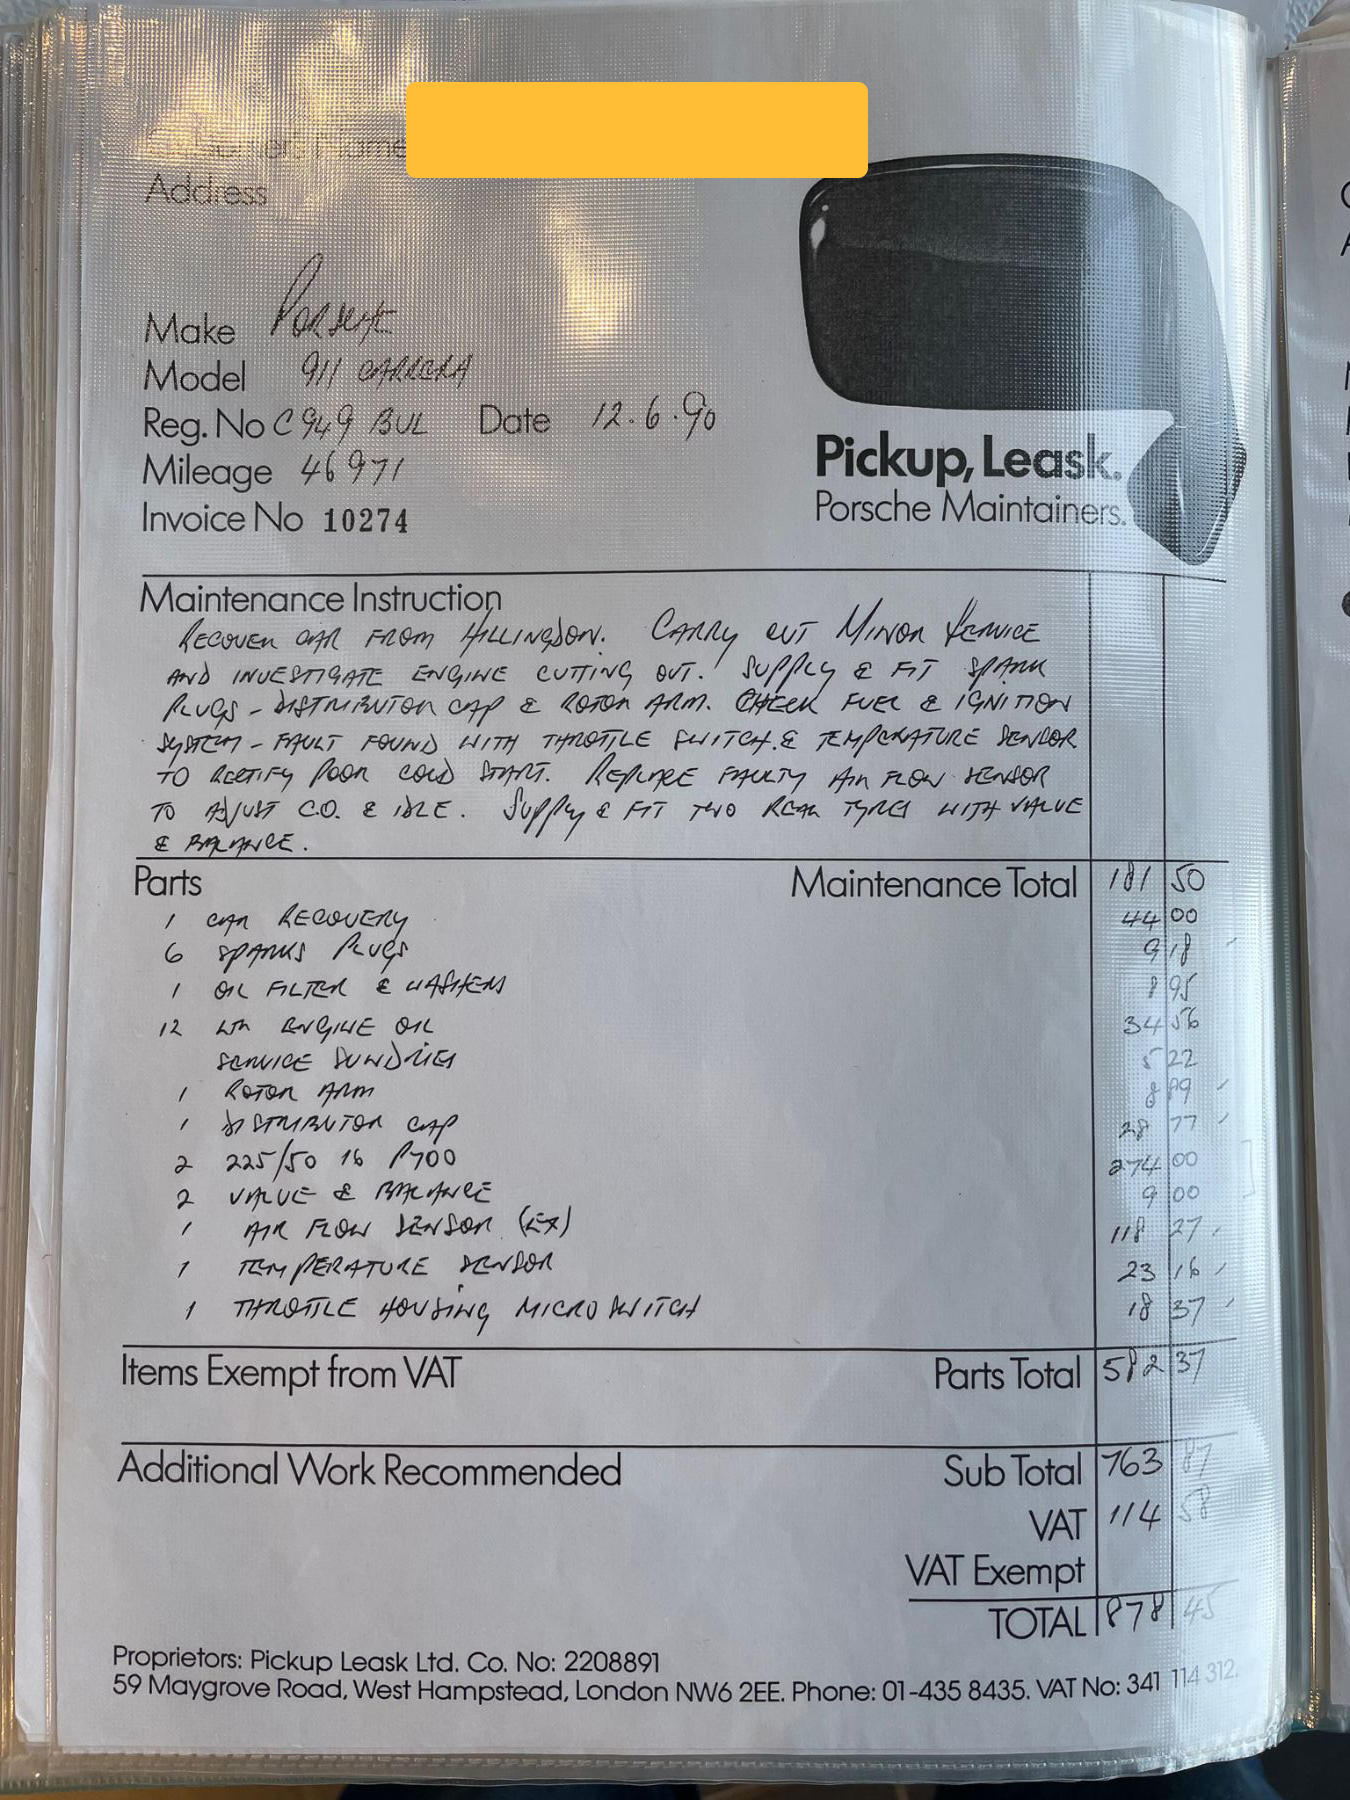 Customer's Name
Address
Make PORSCHE
Model 911 CARRERA
Reg. No C949 BUL Date 12.6.90
Mileage 46971
Invoice No 10274
Pickup, Leask.
Porsche Maintainers.
Maintenance Instruction
RECOVER CAR FROM HILLINGDON. CARRY OUT MINOR SERVICE
AND INVESTIGATE ENGINE CUTTING OUT. SUPPLY & FIT SPARK
PLUGS - DISTRIBUTOR CAP & ROTOR ARM. CHECK FUEL & IGNITION
SYSTEM - FAULT FOUND WITH THROTTLE SWITCH & TEMPERATURE SENSOR
TO RECTIFY POOR COLD START. REPLACE FAULTY AIR FLOW SENSOR
TO ADJUST C.O. & IDLE. SUPPLY & FIT TWO REAR TYRES WITH VALUE
& BALANCE.
Parts Maintenance Total 181 50
1 CAR RECOVERY 44 00
6 SPARKS PLUGS 9 18
1 OIL FILTER & WASHERS 8 95
12 LTR ENGINE OIL 34 56
SERVICE SUNDRIES 5 22
1 ROTOR ARM 8 89
1 DISTRIBUTOR CAP 28 77
2 225/50 16 P700 274 00
2 VALUE & BALANCE 9 00
1 AIR FLOW SENSOR (EX) 118 27
1 TEMPERATURE SENSOR 23 16
1 THROTTLE HOUSING MICRO SWITCH 18 37
Items Exempt from VAT Parts Total 582 37
Additional Work Recommended Sub Total 763 87
VAT 114 58
VAT Exempt
TOTAL 878 45
Proprietors: Pickup Leask Ltd. Co. No: 2208891
59 Maygrove Road, West Hampstead, London NW6 2EE. Phone: 01-435 8435. VAT No: 341 114 312.